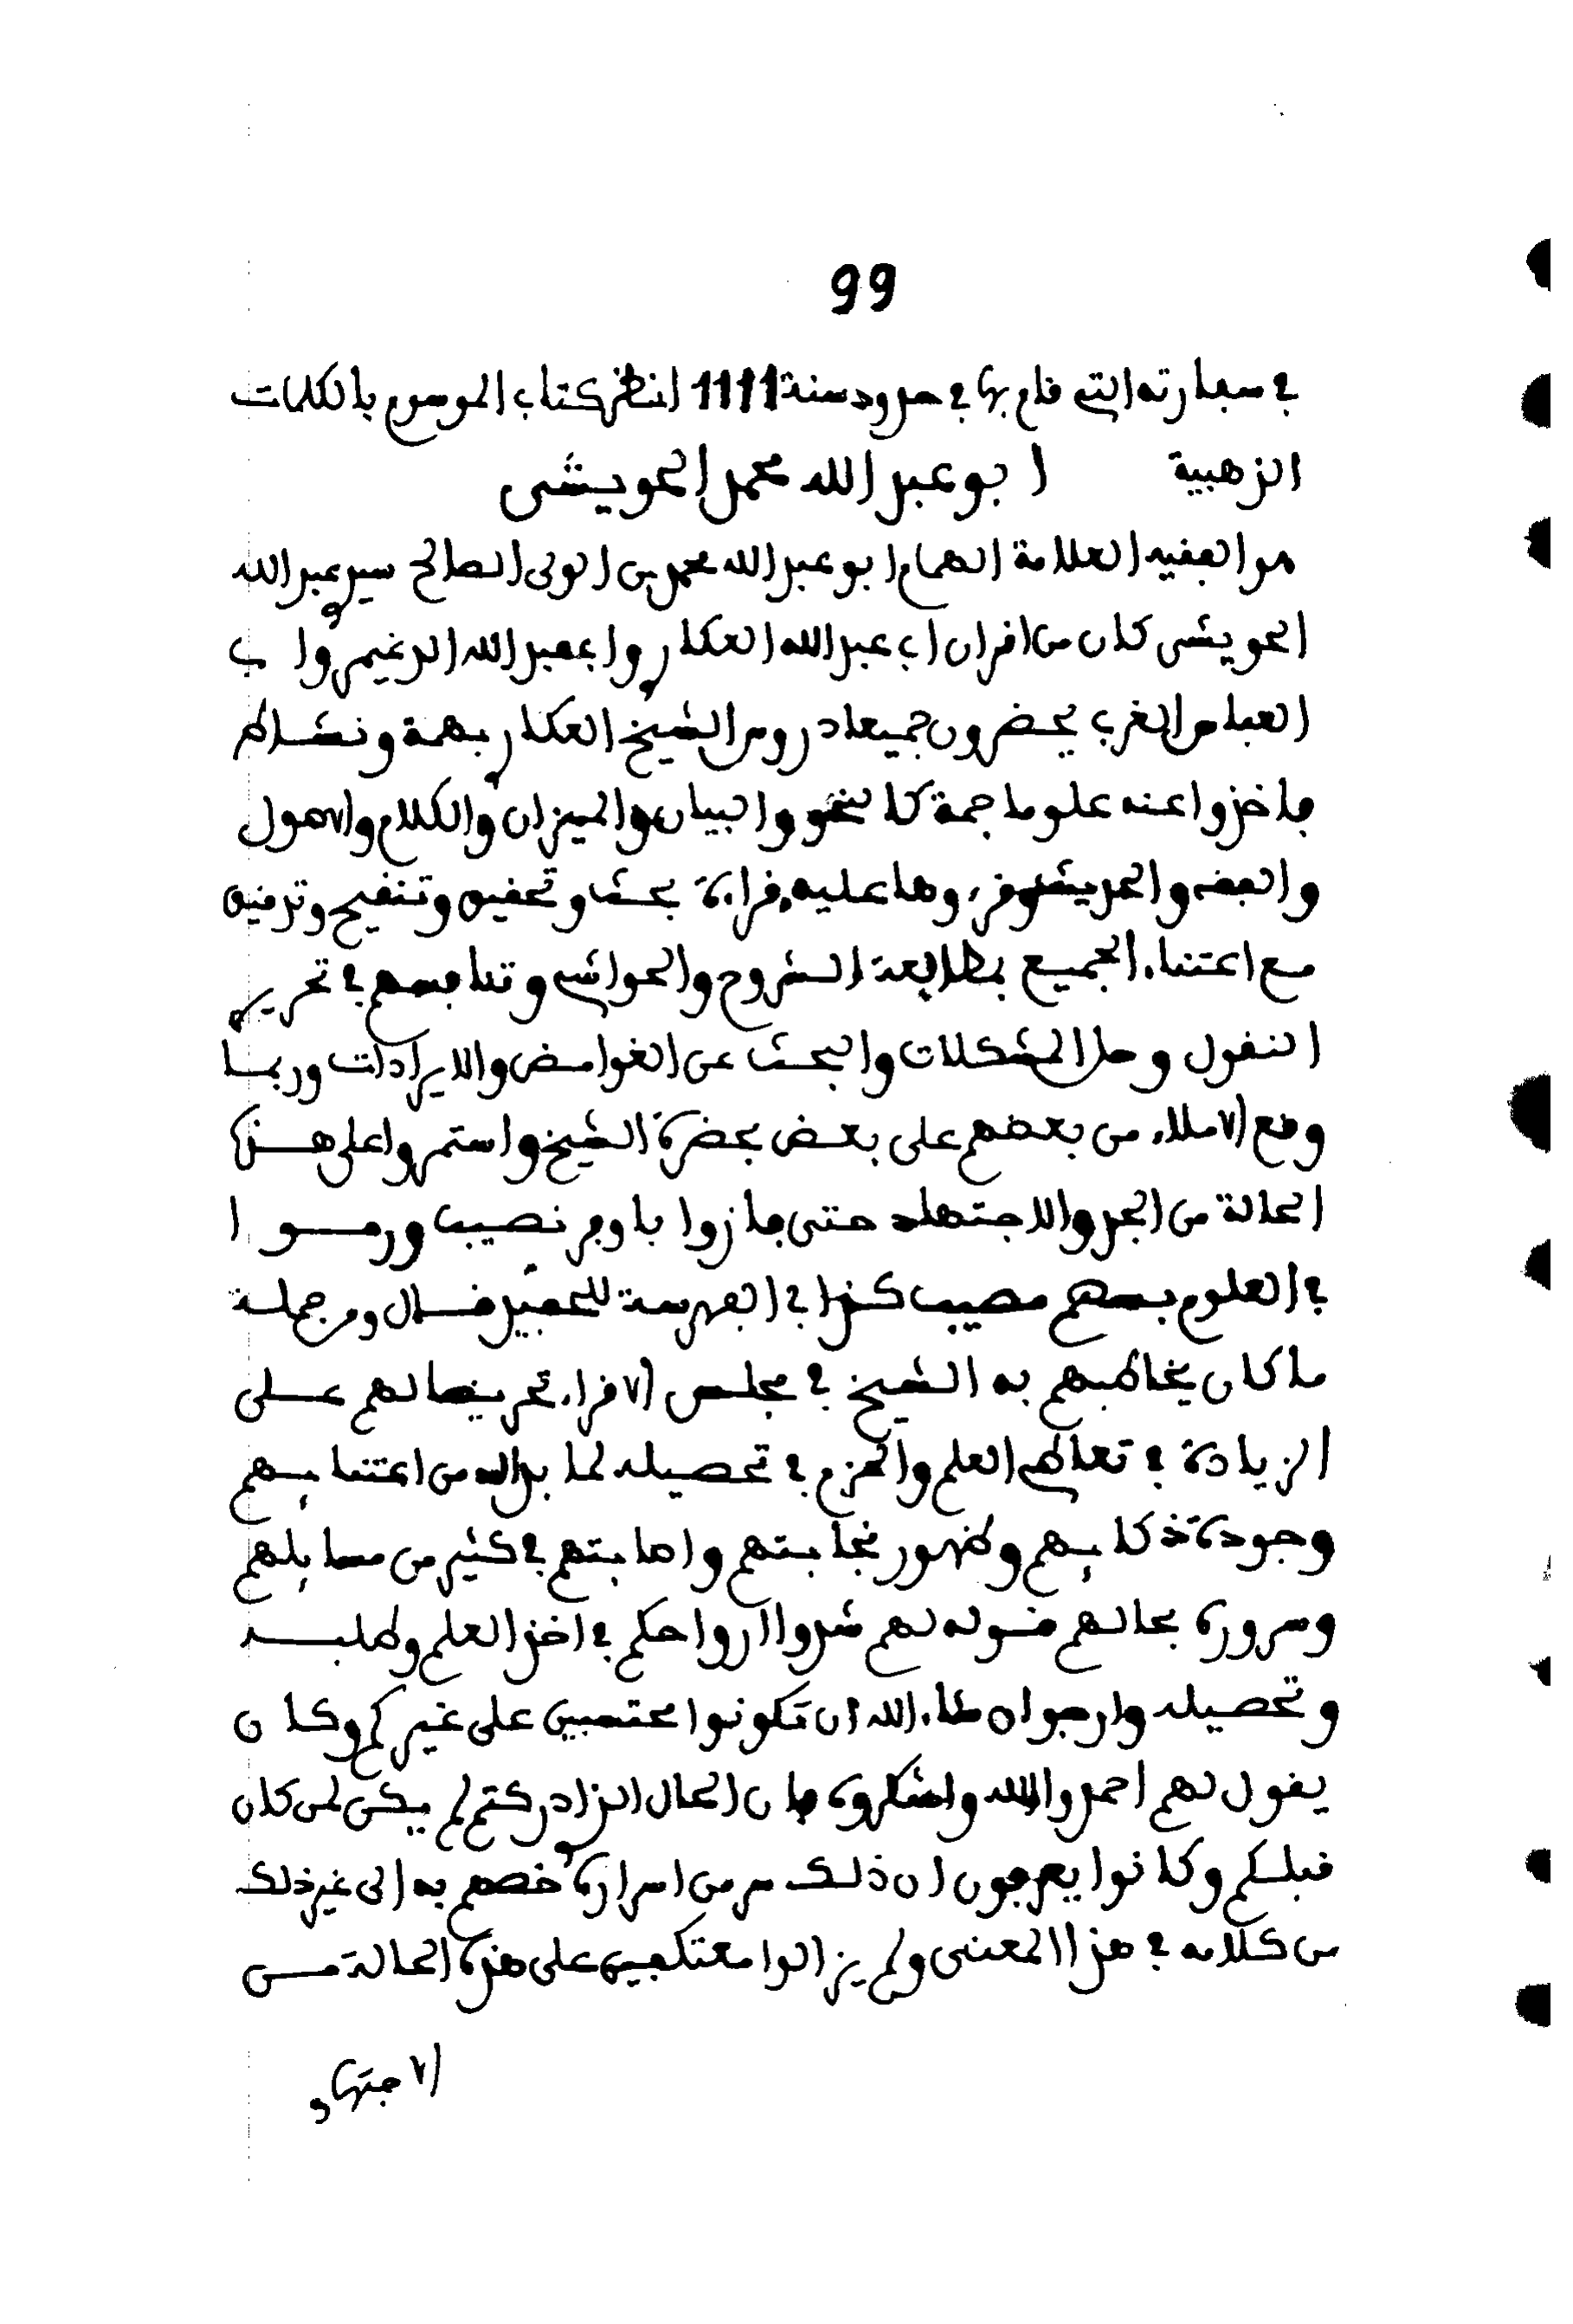 99
في سفارته التي قام بها في حدود سنة 1111 انظر كتاب الموسوم بالكلمات
الذهبية ابو عبد الله محمد الحويشي
هو الفقيه العلامة الهمام ابو عبد الله محمد بن الولي الصالح سيدي عبد الله
الحويشي كان من اقران ابي عبد الله العكاري وابي عبد الله الدغيمي وابي
العباس الغربي يحضرون جميعا دروس الشيخ العكاري بهمة ونشاط
فاخذوا عنه علوما جمة كالنحو والبيان والميزان والكلام والاصول
والفقه والحديث وقرءوها عليه قراءة بحث وتحقيق وتنقيح وتدقيق
مع اعتناء الجميع بمطالعة الشروح والحواشي وتنافسهم في تحرير
النقول وحل المشكلات والبحث عن الغوامض والايرادات وربما
وقع الاملاء من بعضهم على بعض بحضرة الشيخ واستمروا على هذه
الحالة من الجد والاجتهاد حتى فازوا باوفر نصيب ورموا
في العلوم بسهم مصيب كذا في الفهرسة للحفيد قال ومن جملة
ما كان يخاطبهم به الشيخ في مجلس الاقراء تحريضا لهم على
الزيادة في تعاطي العلم والحزم في تحصيله لما بدا له من اعتنائهم
وجودة ذكائهم وظهور نجابتهم واصابتهم في كثير من مسائلهم
وسروره بحالهم قوله لهم شدوا ارواحكم في اخذ العلم وطلبه
وتحصيله وارجوا ان شاء الله ان تكونوا محتسبين على غيركم وكان
يقول لهم احمدوا الله واشكروه فان الحال الذي ادركتم لم يكن لمن كان
قبلكم وكانوا يعرفون ان ذلك سر من اسراره خصهم به الى غير ذلك
من كلامه في هذا المعنى ولم يزالوا معتكفين على هذه الحالة من
الاجتهاد